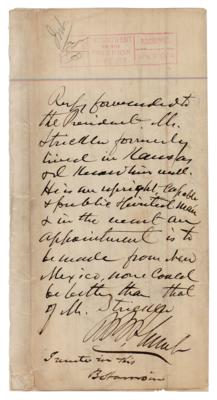 Resp. forwarded to
the President. Mr.
Strickler formerly
lived in Kansas
& I know him well.
He is an upright, capable
& public spirited man
& in the event an
appointment is to
be made from New
Mexico, none could
be better than that
of Mr. Strickler
I unite in this